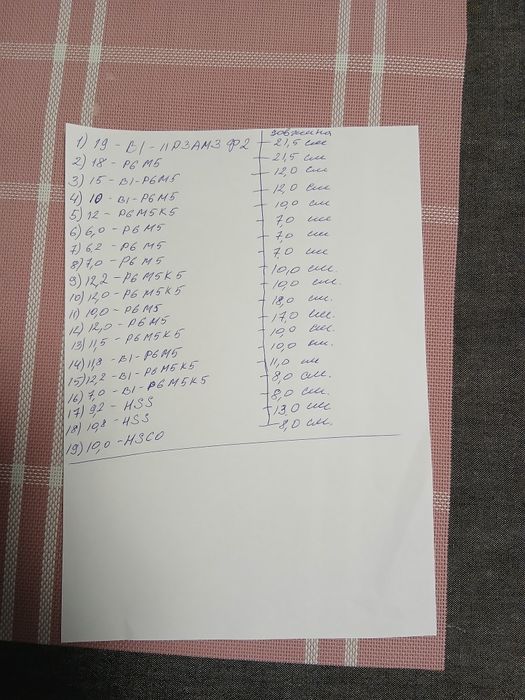 довжина
1) 19 - В1 - 11Р3АМ3Ф2 - 21,5 см
2) 18 - Р6М5 - 21,5 см
3) 15 - В1 - Р6М5 - 12,0 см
4) 10 - В1 - Р6М5 - 12,0 см
5) 12 - Р6М5К5 - 10,0 см
6) 6,0 - Р6М5 - 7,0 см
7) 6,2 - Р6М5 - 7,0 см
8) 7,0 - Р6М5 - 7,0 см
9) 12,2 - Р6М5К5 - 10,0 см.
10) 12,0 - Р6М5К5 - 10,0 см.
11) 10,0 - Р6М5 - 18,0 см
12) 12,0 - Р6М5 - 17,0 см.
13) 11,5 - Р6М5К5 - 10,0 см.
14) 11,8 - В1 - Р6М5 - 10,0 см.
15) 12,2 - В1 - Р6М5К5 - 11,0 см
16) 7,0 - В1 - Р6М5К5 - 8,0 см.
17) 9,2 - HSS - 8,0 см.
18) 10,8 - HSS - 13,0 см
19) 10,0 - HSCO - 8,0 см.